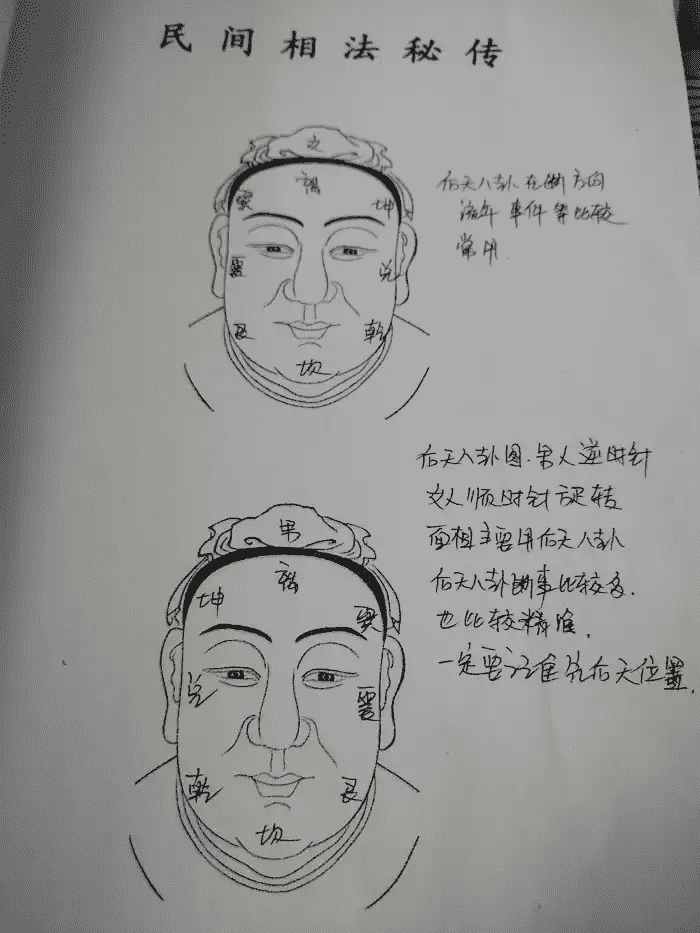 民间相法秘传
女
離
巽 坤
震 兑
艮 乾
坎
后天八卦在断方向
流年事件等比较
常用.
后天八卦图.男人逆时针
女人顺时针旋转
面相主要用后天八卦
后天八卦断事比较多.
也比较精准.
一定要记准后天位置.
男
離
坤 巽
兑 震
乾 艮
坎